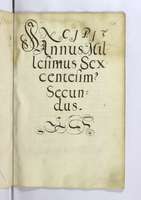 EXCIPIT
Annus Mil
lesimus Sex
centesim9
Secun-
dus.